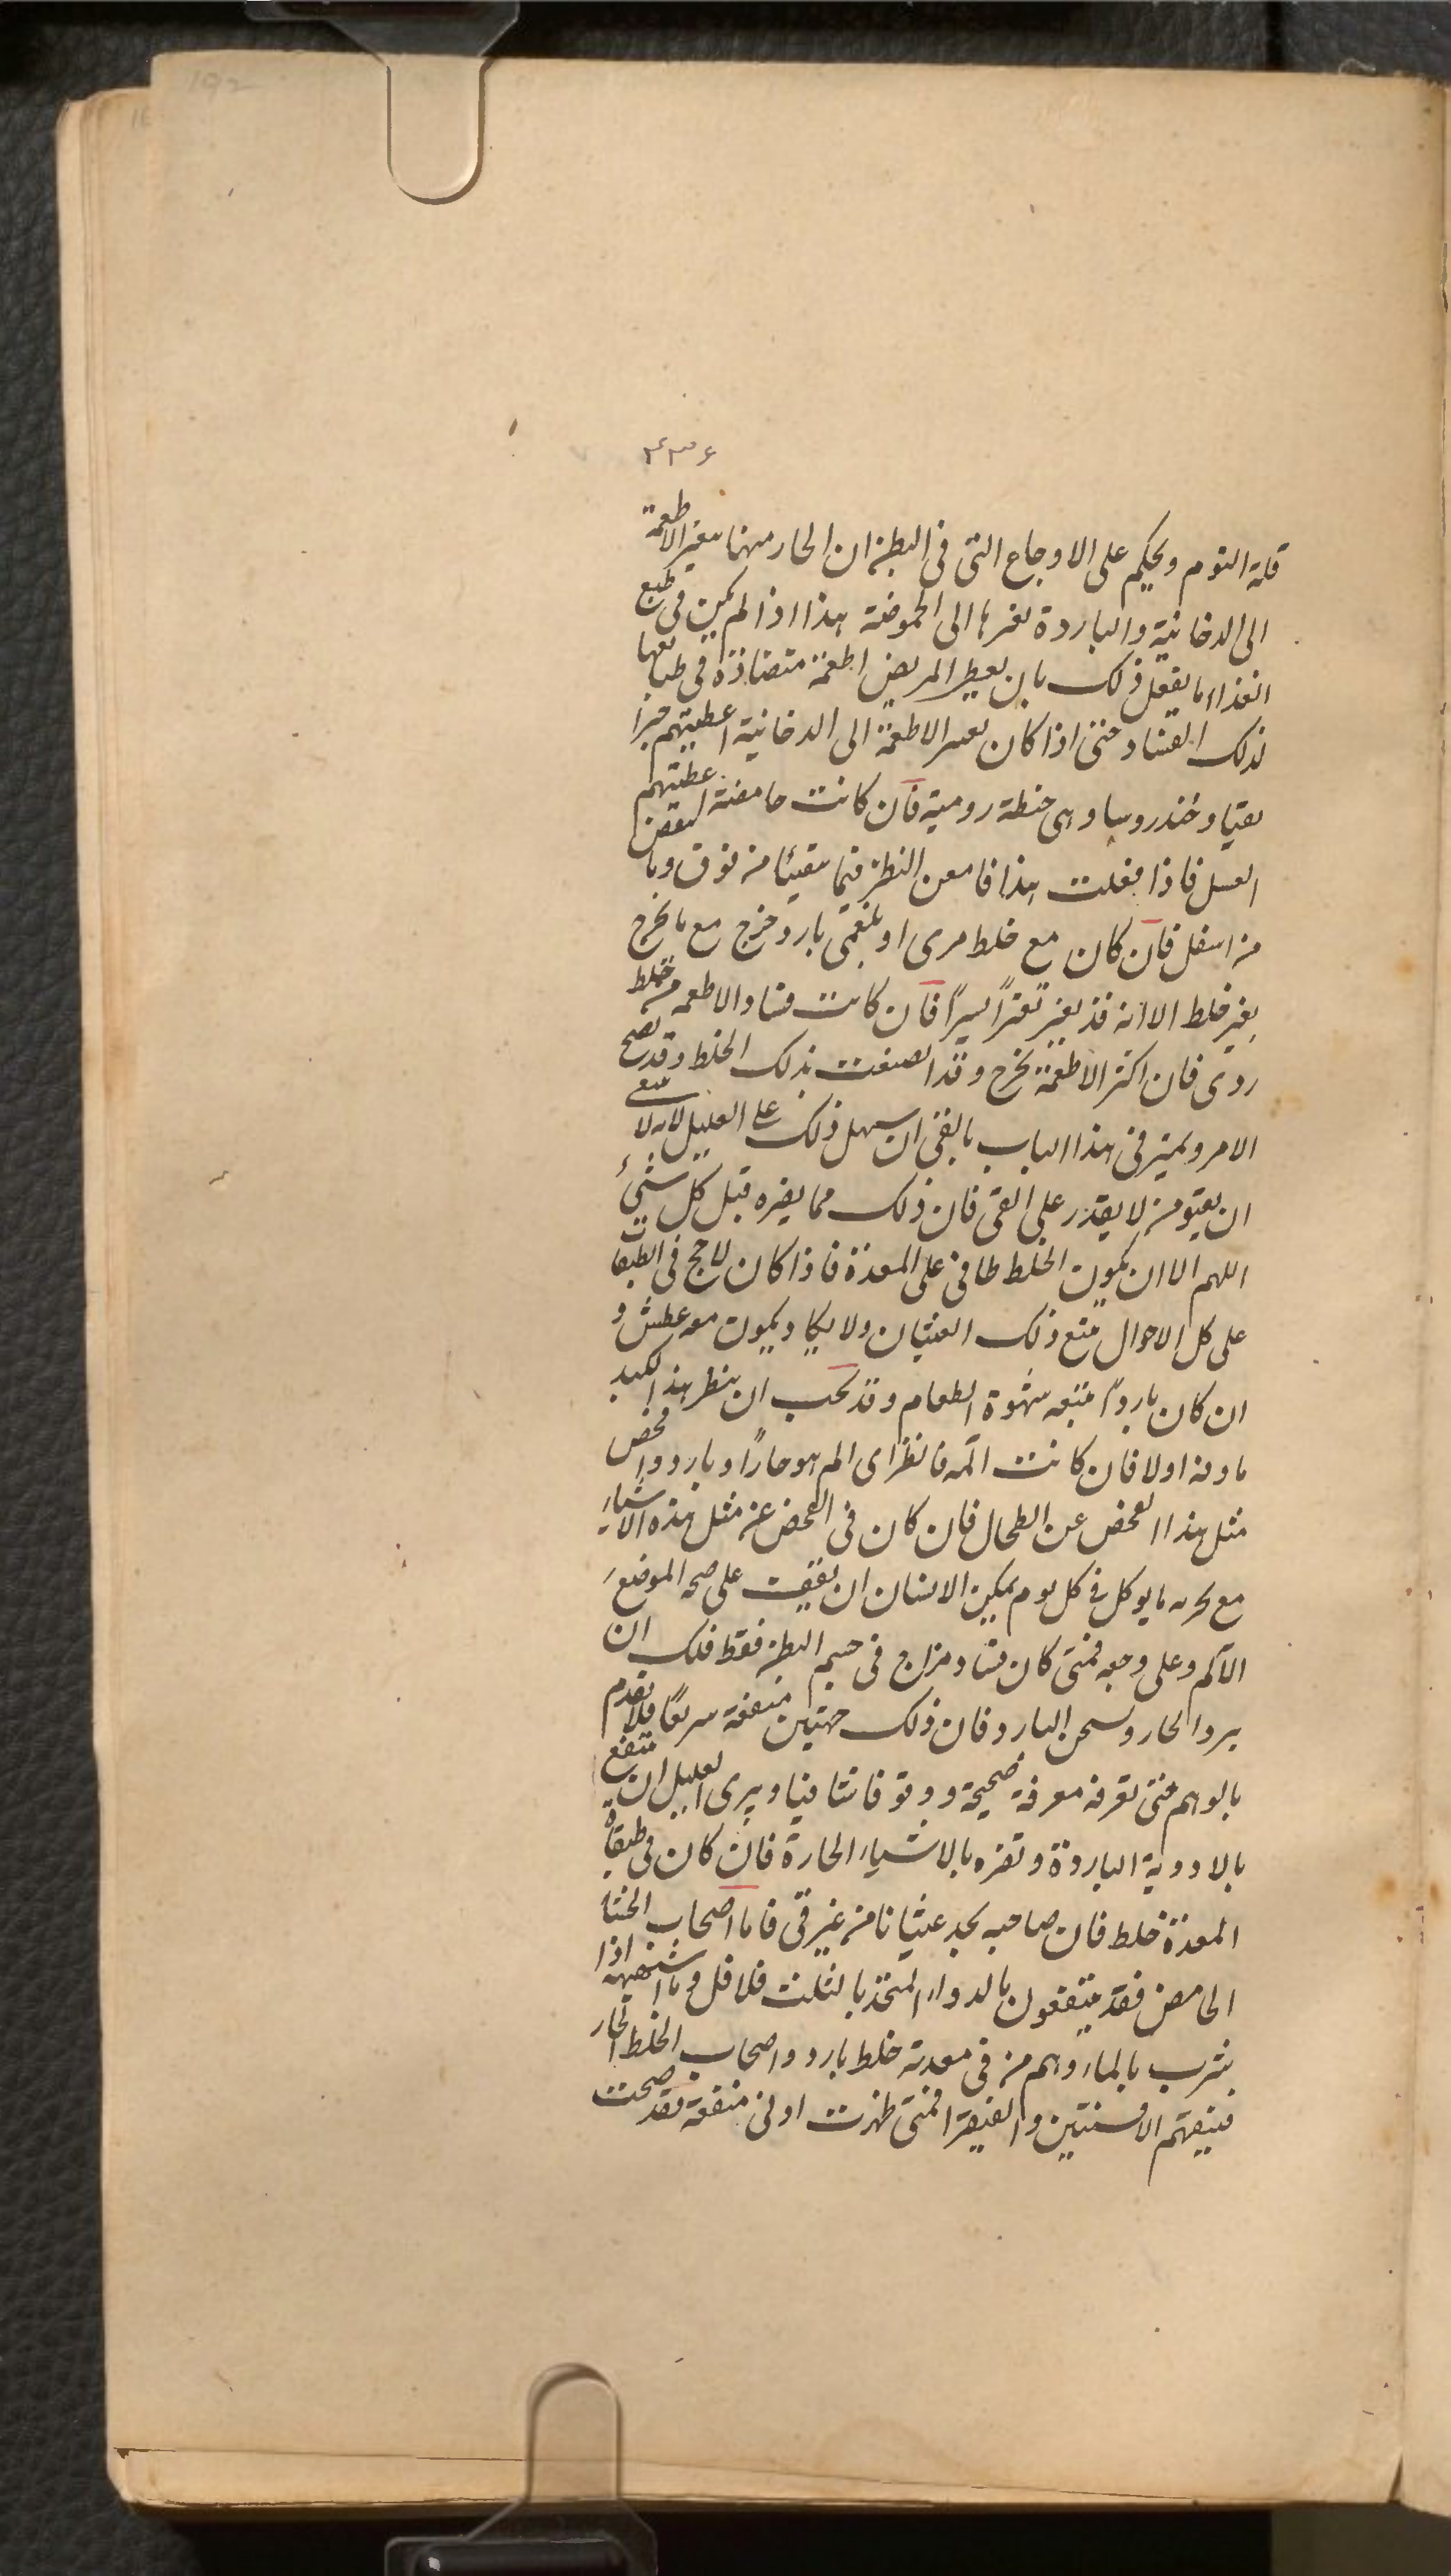 ۴۳۶
قلة النوم ويحكم على الاوجاع التى فى البطن ان الحار منها يغير الاطعمة
الى الدخانية والباردة تغيرها الى الحموضة هذا اذا لم يكن فى طبع
الغذاء ما يفعل ذلك بان يعطى المريض اطعمة متضادة فى طبايعها
لذلك الفساد حتى اذا كان تغير الاطعمة الى الدخانية اعطيتهم خبزا
نقيا وخندروسا وهى حنطة رومية فان كانت حامضة اعطيتهم
العسل فاذا فعلت هذا فامعن النظر فيما يتقيئا من فوق وما
من اسفل فان كان مع خلط مرى او بلغمى بارد خرج مع ما يخرج
بغير خلط الا انه قد تغير تغيرًا يسيرًا فان كانت فساد الاطعمه من خلط
ردى فان اكثر الاطعمة تخرج وقد انصبغت بذلك الخلط وقد يصح
الامر ويميز فى هذا الباب بالقى ان سهل ذلك على العليل لانه لا
ان يقيؤ من لا يقدر على القى فان ذلك مما يضره قبل كل شىء
اللهم الا ان يكون الخلط طافى على المعدة فاذا كان لاحج فى الطبقات
على كل الاحوال يتبع ذلك الغثيان ولا يكاد يكون معه عطش و
ان كان باردًا يتبعه شهوة الطعام وقد يجب ان ينظر هذا الكبد
ماوفه اولا فان كانت الٓمه فانظر اى الم هو حارًا او بارد وافحص
مثل هذا الفحص عن الطحال فان كان فى الفحص عن مثل هذه الاشياء
مع تجربه ما يوكل فى كل يوم يمكن الانسان ان يقف على صحه الموضع
الآلم وعلى وجعه فمتى كان فساد مزاج فى جسم البطن فقط فلك ان
يبرد الحار ويسخن البارد فان ذلك منفعة سريعًا فلا تقدم
بالوهم حتى تعرفه معرفة صحيحة ووثوقا شافيا ويرى العليل ان ينتفع
بالادوية الباردة وتضره بالاشياء الحارة فان كان فى طبقات
المعدة خلط فان صاحبه يجد غثيانا من غير قى فاما اصحاب الجشا
الحامض فقد ينتفعون بالدواء المتخذ بالثلث فلافل وما اشبهه اذا
يشرب بالماء وهم من فى معدته خلط بارد واصحاب الخلط الحار
فينفعهم الافسنتين والفيقرا فمتى ظهرت اولى منفعة فقد صحت